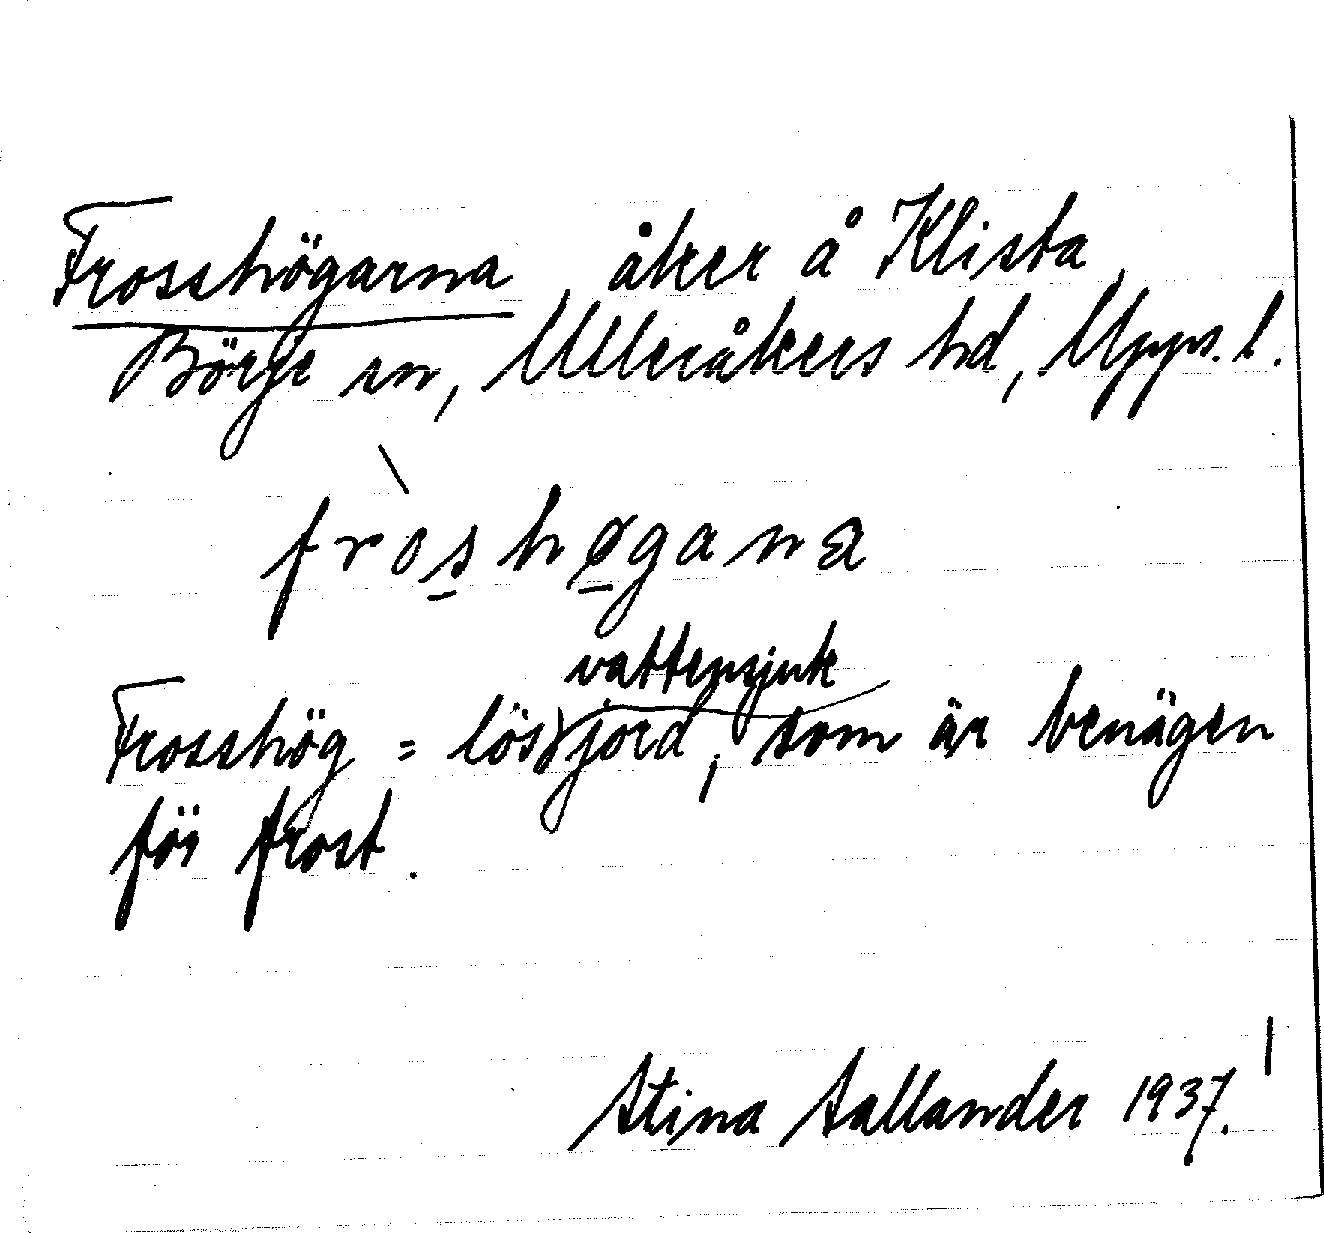 Frosshögarna, åker å Klista,
Börje sn, Ulleråkers hd, Upps. l.
fròs̲hø̲gana
Frosshög = lös vattensjuk jord, som är benägen
för frost.
Stina Sallander 1937.